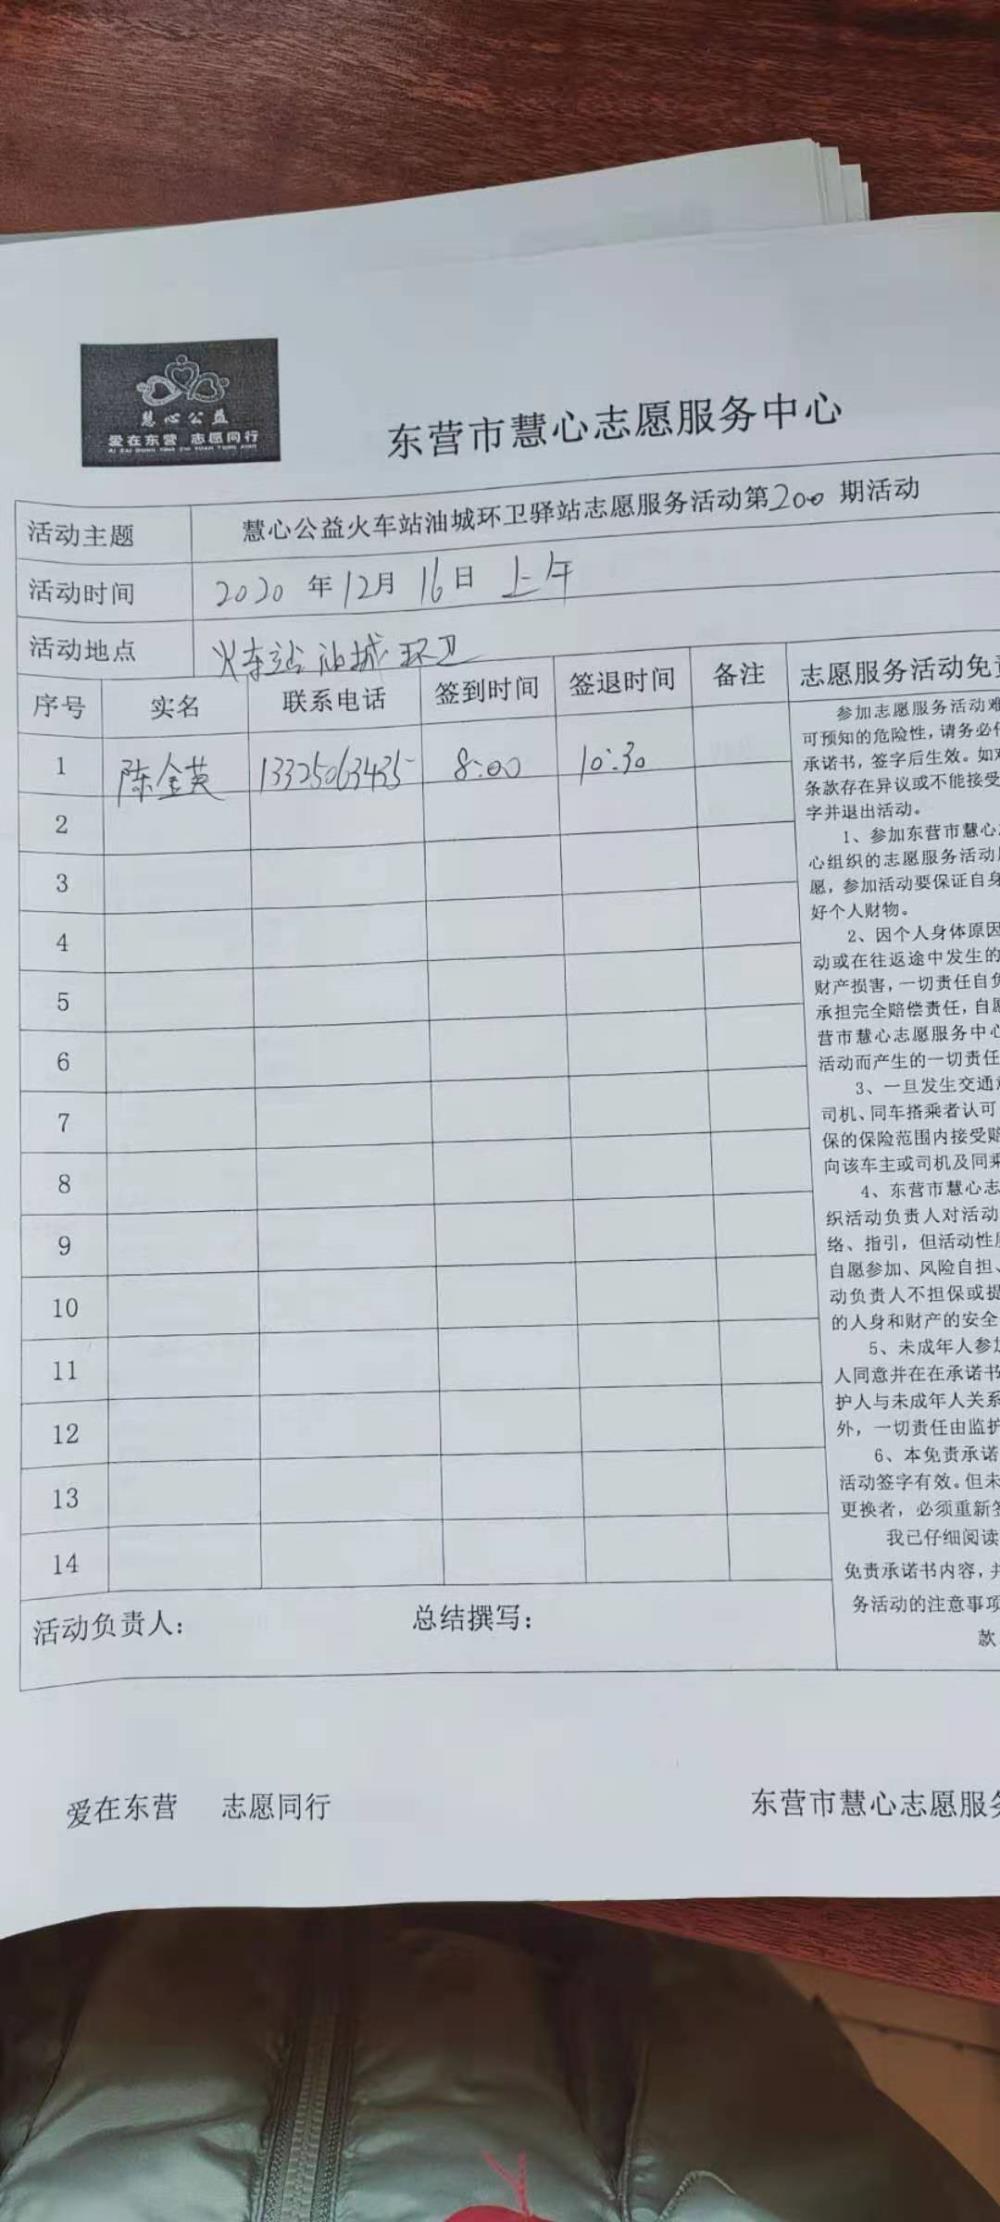 慧心公益
爱在东营 志愿同行
AI ZAI DONG YING ZHI YUAN TONG XING
东营市慧心志愿服务中心
活动主题 慧心公益火车站油城环卫驿站志愿服务活动第200期活动
活动时间 2020年12月16日 上午
活动地点 火车站油城环卫
序号 实名 联系电话 签到时间 签退时间 备注
1 陈金英 13325063435 8:00 10:30
2
3
4
5
6
7
8
9
10
11
12
13
14
活动负责人： 总结撰写：
志愿服务活动免责
参加志愿服务活动难
可预知的危险性，请务必仔
承诺书，签字后生效。如对
条款存在异议或不能接受
字并退出活动。
1、参加东营市慧心志
心组织的志愿服务活动
愿，参加活动要保证自身
好个人财物。
2、因个人身体原因
动或在往返途中发生的
财产损害，一切责任自负
承担完全赔偿责任，自愿
营市慧心志愿服务中心
活动而产生的一切责任
3、一旦发生交通意
司机、同车搭乘者认可
保的保险范围内接受赔
向该车主或司机及同乘
4、东营市慧心志
织活动负责人对活动
络、指引，但活动性质
自愿参加、风险自担、
动负责人不担保或提
的人身和财产的安全
5、未成年人参加
人同意并在在承诺书
护人与未成年人关系
外，一切责任由监护
6、本免责承诺
活动签字有效。但未
更换者，必须重新签
我已仔细阅读
免责承诺书内容，并
务活动的注意事项
款
爱在东营 志愿同行
东营市慧心志愿服务